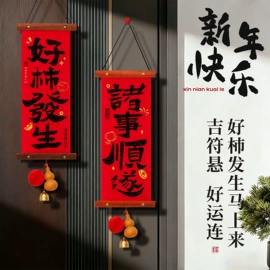 好柿發生
諸事順遂
新年
快乐
xin nian kuai le
好柿发生马上来
吉符悬 好运连